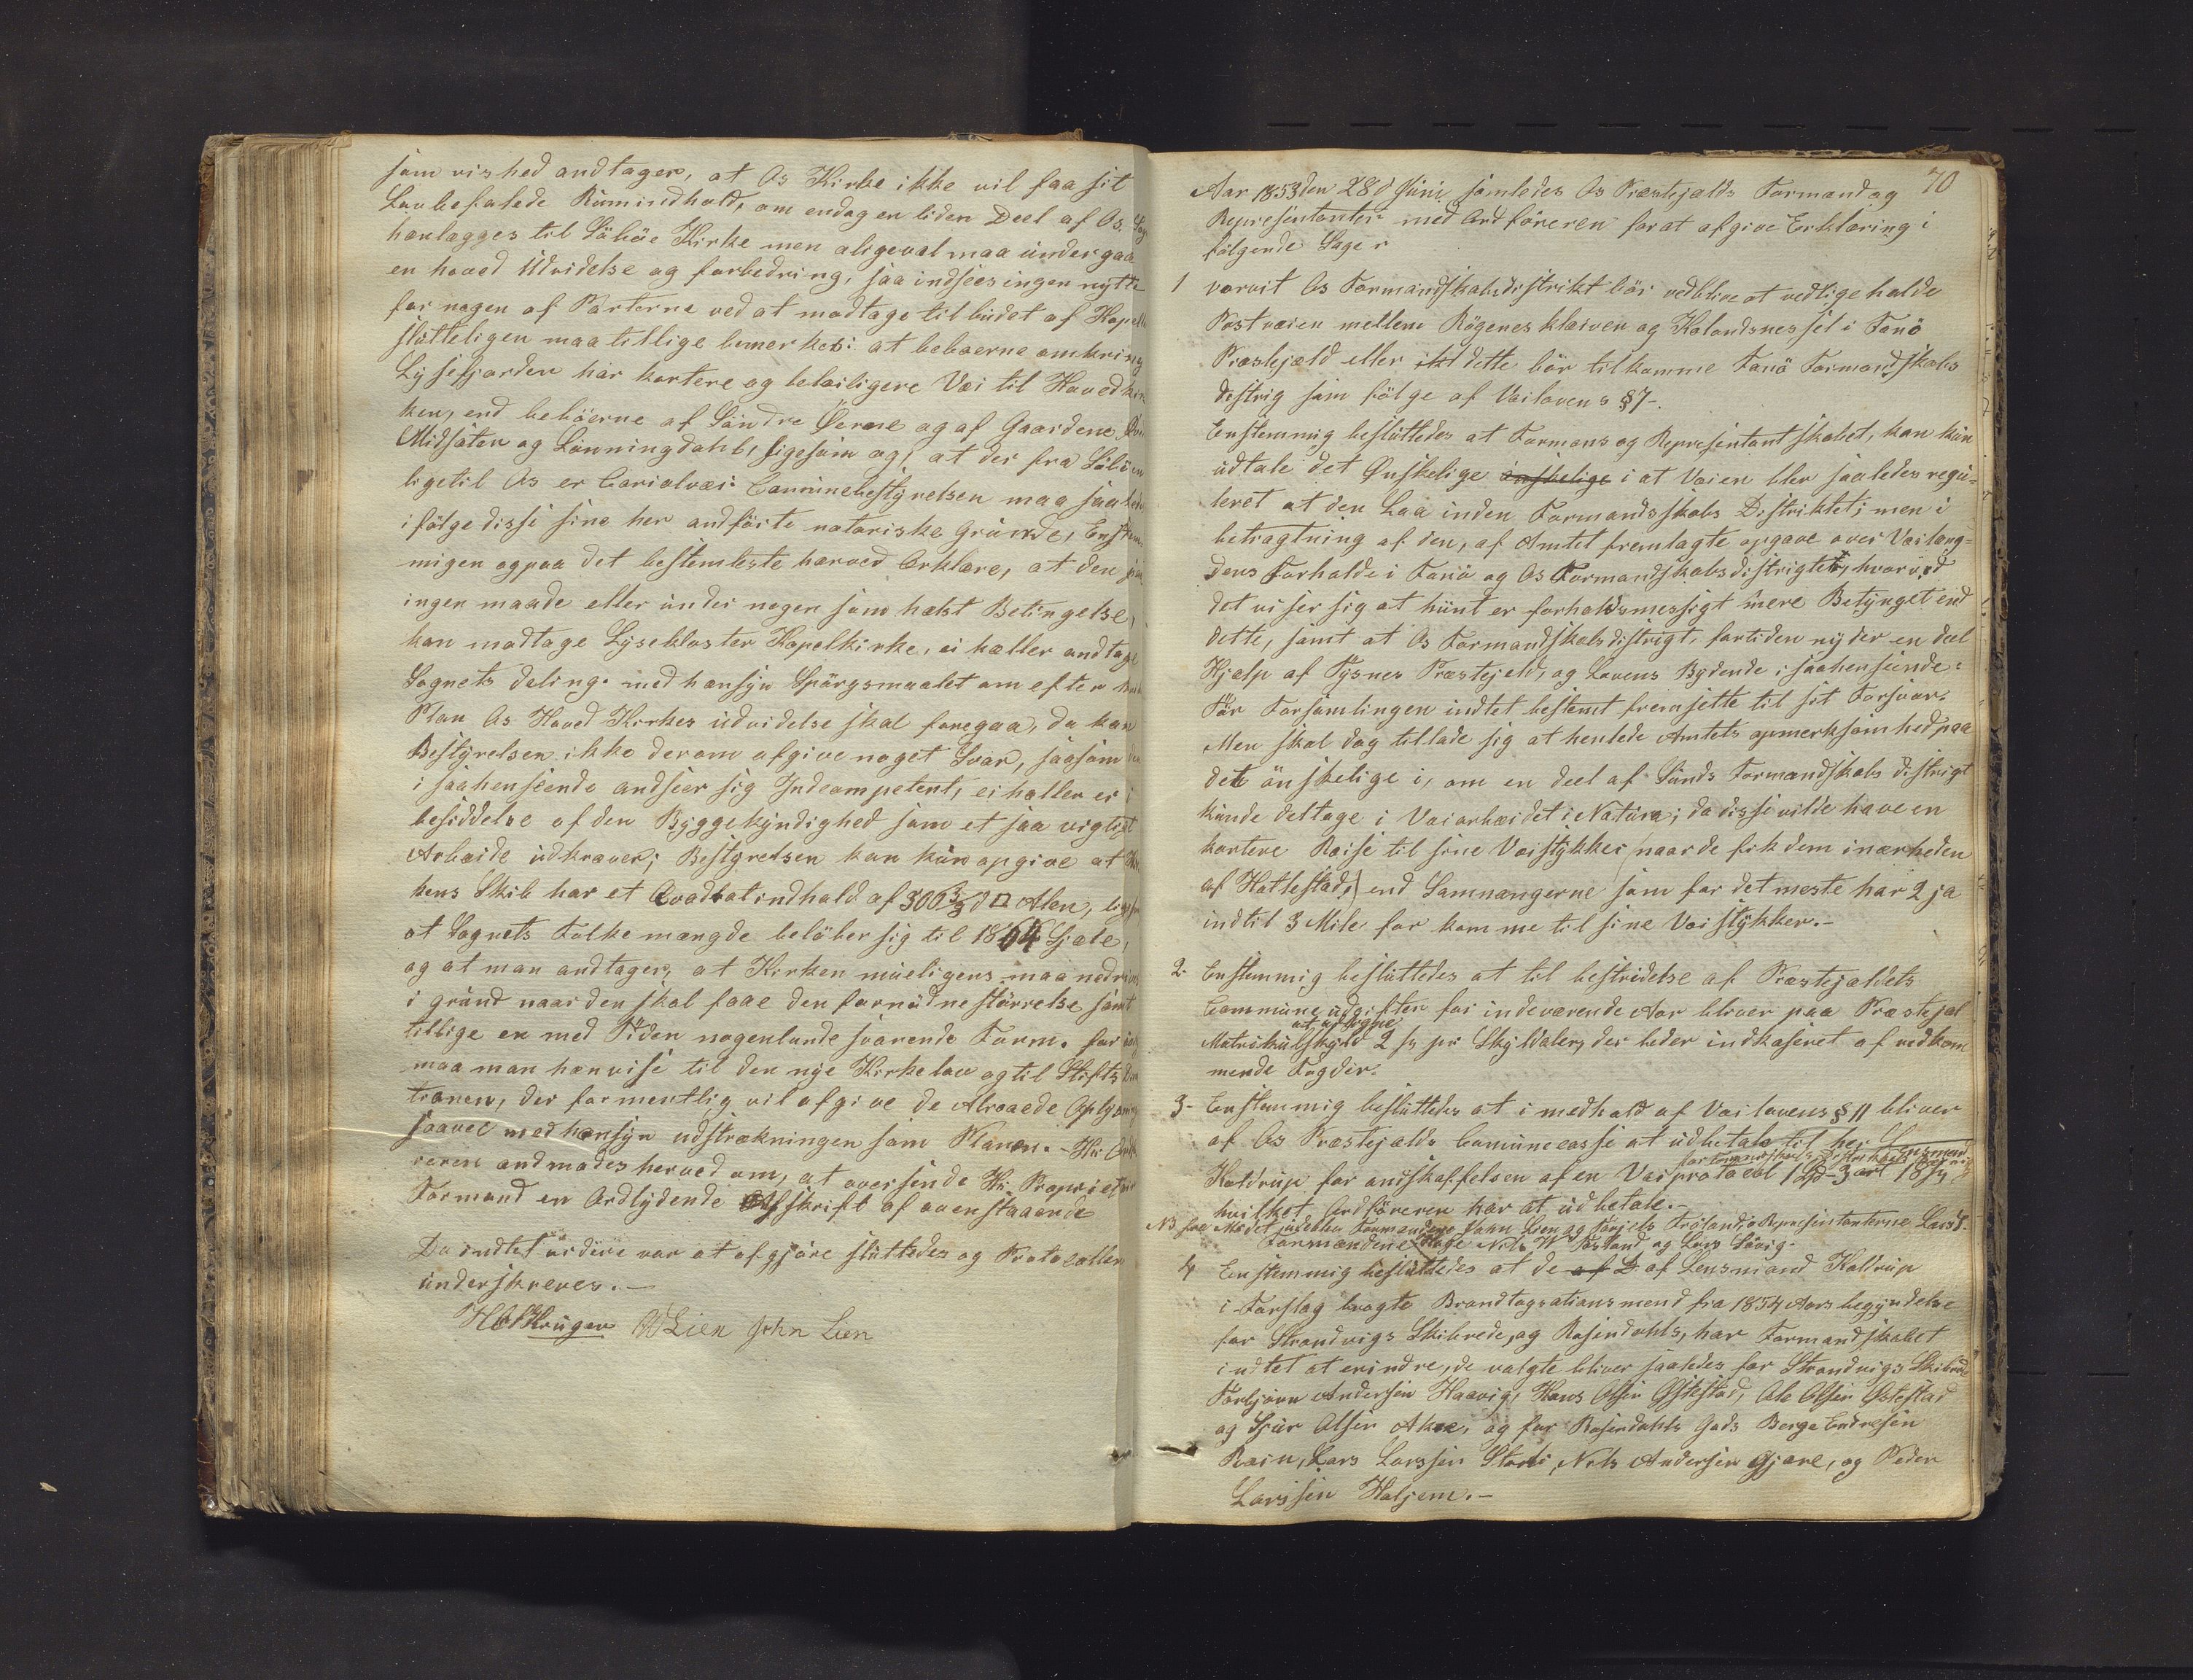 som vished andtager, at Os Kirke ikke vil faa sit
Lovbefalede Rumindhold, om endog en liden Deel af Os Sog
henlægges til Söhöe Kirke men aligevel maa undergaa
en hoved Udvidelse og forbedring, saa indsees ingen nytte
for nogen af Parterne ved at modtage tilbudet af Kapell
slutteligen maa tillige bemerkes: at beboerne omkring
Lysefjorden har kortere og beleiligere Vei til Hovedkir
ken, end beboerne af Söndre Öerne og af Gaardene
Midsäter og Lönningdahl, ligesom og, at der fra
ligetil Os er Cariolvei. Communebestyrelsen maa saaledes
i fölge disse sine her andförte notoriske Grunde, Enstem
migen og paa det bestemteste herved Erklære, at den paa
ingen maade eller under nogen som helst Betingelse,
kan modtage Lysekloster Kapelkirke, ei heller andtage
Sognets deling. med hensyn Spörgsmaalet om efter
Plan Os Hoved Kirkes udvidelse skal foregaa, da kan
Bestyrelsen ikke derom afgive noget Svar, saasom den
i saahenseende andseer sig Indcompetent, ei heller er i
besiddelse af den Byggekyndighed som et saa vigtigt
Arbeide udkræver; Bestyrelsen kan kun opgive at Kir
kens Skib har et Qvadratindhold af 306 ⅔ d □ Alen,
at Sognets Folkemængde belöber sig til 1864 Sjæle,
og at man andtager, at Kirken mueligens maa nedrives
i grund naar den skal faae den fornödne störrelse samt
tillige en med Tiden nogenlunde svarende Form. for
maa man henvise til den nye Kirkelov og til Stifts
tionen, der formentlig vil afgive de Alraaede Oplysning
saavel med hensyn udstrækningen som Planen. - Hr Ord
reren andmodes herved om, at oversende Hr. Proprietær
Formand en Ordlydende Afskrift af ovenstaaende
Da indtet vidre var at afgjöre sluttedes og Protocollen
underskreves. -
Krüger OLien John Lien
70
Aar 1853 den 28d Juni samledes Os Præstejælds Formand og
Representanter med Ordföreren for at afgive Erklæring i
fölgende Sager
1 vorvit Os Formandskabsdistrikt bör vedblive at vedligeholde
Postveien mellem Rögenes kleiven og Halandsnesset i Fanö
Præstejæld eller ikt dette bör tilkomme Fanö Formandskabs
destrig som fölge af Veilovens §7 -.
Enstemmig besluttedes at Formans og Representantskabet, kan kun
udtale det Ønskelige önskelige i at Veien blev saaledes regu-
leret at den Laa inden Formandsskabs Distriktet; men i
betragtning af den, af Amtet fremlagte opgave over Veilæng-
dens Forholde i Fanö og Os Formandskabsdistrigter, hvorved
det viser sig at hunt er forholdsmessigt mere Betynget end
dette, samt at Os Formandskabsdistrigt, fortiden nyder en deel
Hjælp af Tysnes Præstejeld, og Lovens Bydende i saahenseende:
Tör Forsamlingen indtet bestemt fremsette til sit Forsvar.
Men skal dog tillade sig at henlede Amtets opmerksomhed paa
det önskelige i, om en deel af Sunds Formandskabs distrigt
kunde deltage i Veiarbeidet i Natura; da disse vilde have en
kortere Reise til sine Veistykker (naar de fik dem i nærheden
af Hattestad,) end Samnangerne som for det meste har 2 ja
indtil 3 Mile for komme til sine Veistykker. -
2. Enstemmig besluttedes at til bestridelse af Præstejældets
Commune udgifter for indeværende Aar bliver paa Præstejæl
Matrikülskyld 2 ſs pr Skyldaler, der beder indkaseret af vedkom
mende Fogder.
3 - Enstemmig besluttedes at i medhold af Veilovens § 11 bliver
af Os Præstejælds Comunecasse at udbetale til her Lensmand
Koldrup for andskaffelsen af en Veiprotocol 1 Spd - 3 ort 18 ſs
hvilket Ordföreren har at udbetale. -
NB fra Mödet udeblev Formændene John Lien og Niels Fröland, Representanterne Lars
Formændene Hage Nils W Röttand og Lars Sövig.
4 Enstemmig besluttedes at de af L af Lensmand Koldrup
i Forslag bragte Brandtagsationsmend fra 1854 Aars begyndelse
for Strandvigs Skibrede, og Rosendahls, har Formandskabet
indtet at erindre, de valgte bliver saaledes for Strandvigs Skibrede
Torbjörn Andersen Haavig, Hans Olsen Øjstestad, Ole Olsen Østestad
og Sjur Olsen Akre, og for Rosendahls Gods Berge Endresen
Röin, Lars Larssen Stordi, Nils Andersen Gjære, og Peder
Larssen Haljem. -